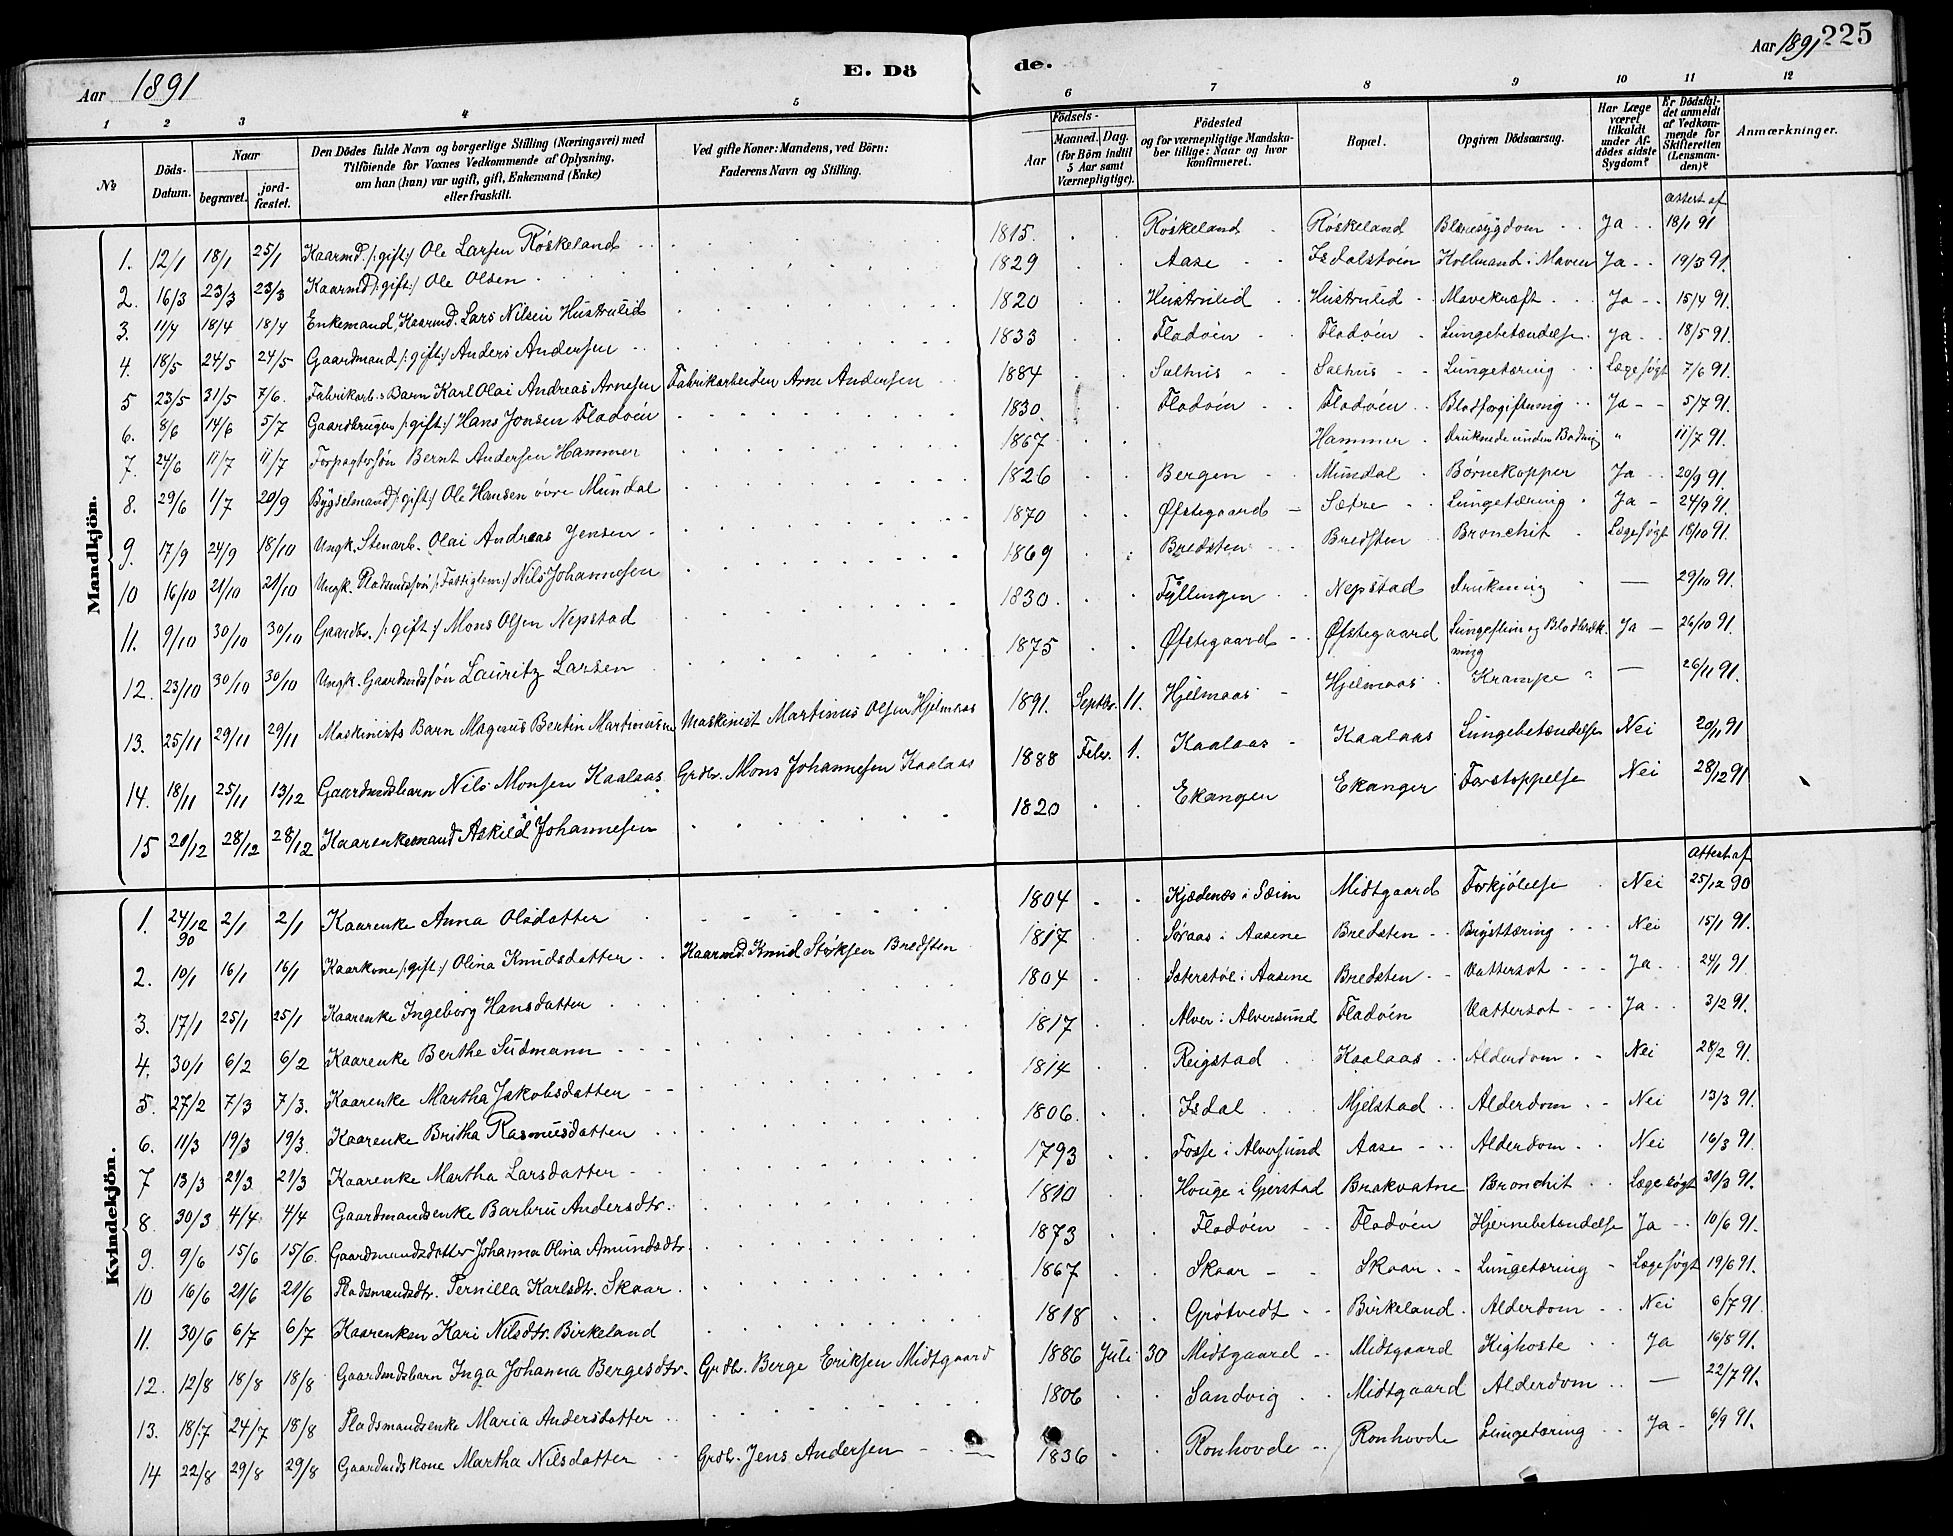 Aar 1891 E. Dö de. Aar 1891 225
1 2 3 4 5 6 7 8 9 10 11 12
№ Döds-Datum. Naar begravet. jordfæstet. Den Dödes fulde Navn og borgerlige Stilling (Næringsvei) med Tilföiende for Voxnes Vedkommende af Oplysning, om han (hun) var ugift, gift, Enkemand (Enke) eller fraskilt. Ved gifte Koner: Mandens, ved Börn: Faderens Navn og Stilling. Födsels- Aar Maaned. Dag. (for Börn indtil 5 Aar samt Værnepligtige). Födested og for værnepligtige Mandskaber tillige: Naar og hvor konfirmeret. Bopæl. Opgiven Dödsaarsag. Har Læge været tilkaldt under Afdödes sidste Sygdom? Er Dödsfaldet anmeldt af Vedkommende for Skifteretten (Lensmanden)? Anmærkninger.
Mandkjön.
attest af
1. 12/1 18/1 25/1 Kaarmd. /: gift :/ Ole Larsen Röskeland 1815. Röskeland Röskeland Blæresygdom Ja 18/1 91
2. 16/3 23/3 23/3 Kaarmd /: gift :/ Ole Olsen 1829 Aase Isdalstöen Koldbrand i Maven Ja 19/3 91.
3. 11/4 18/4 18/4 Enkemand, Kaarmd. Lars Nilsen Hustrulid 1820 Hustrulid Hustrulid Mavekræft Ja 15/4 91.
4. 18/5 24/5 24/5 Gaardmand /: gift :/ Anders Andersen 1833 Fladöen Fladöen Lungebetændelse Ja 18/5 91.
5 23/5 31/5 7/6. Fabrikarb.s Barn Karl Olai Andreas Arnesen Fabrikarbeider Arne Andersen 1884 Salhus Salhus Lungetæring Læge søgt 7/6 91.
6. 8/6 14/6 5/7 Gaardbruger /: gift :/ Hans Jonsen Fladöen 1830. Fladöen Fladöen Blodforgiftning Ja 5/7 91.
7. 24/6 11/7 11/7 Forpagtersøn Bernt Andersen Hammer 1867 Hammer Druknede under Badning " 11/7 91.
8. 29/6 1/7 20/9 Bygselmand /: gift :/ Ole Hansen övre Mundal 1826 Bergen Mundal Børnekopper Ja 20/9 91.
9. 17/9 24/9 18/10 Ungk. Stenarb. Olai Andreas Jensen 1870 Øfstegaard Sætre Lungetæring Ja 24/9 91.
10 16/10 21/10 21/10 Ungk. Pladsmdssøn /: Fattiglem :/ Nils Johannesen 1869 Bredsten Bredsten Bronchit Læge søgt 16/10 91.
11. 9/10 30/10 30/10 Gaardbr. /: gift :/ Mons Olsen Nepstad 1830. Fyllingen Nepstad Drukning — 29/10 91.
12. 23/10 30/10 30/10 Ungk. Gaardmdssøn Lauritz Larsen 1875 Øfstegaard Øfstegaard Lungeslim og Blodbrækning Ja 26/10 91.
13. 25/11 29/11 29/11 Maskinists Barn Magnus Bertin Martinusen Maskinist Martinus Olsen Hjelmaas 1891. Septbr. 11. Hjelmaas Hjelmaas Krampe — 26/11 91.
14. 18/11 25/11 13/12 Gaardmdsbarn Nils Monsen Kaalaas Grdbr. Mons Johannesen Kaalaas 1888 Febr. 1. Kaalaas Kaalaas Lungebetændelse Nei 20/11 91
15 20/12 28/12 28/12 Kaarenkemand Askild Johannesen 1820 Ekanger Ekanger Forstoppelse Nei 28/12 91
Kvindekjön.
attest af
1. 24/12 90 2/1 2/1 Kaarenke Anna Olsdatter 1804 Kjædenæs i Sæim Midtgaard Forkjölelse Nei 25/12 90
2. 10/1 16/1 16/1 Kaarkone /: gift :/ Olina Knudsdatter Kaarmd. Knud Störksen Bredsten 1817 Søraas i Aasene Bredsten Brysttæring Nei 15/1 91.
3. 17/1 25/1 25/1 Kaarenke Ingeborg Hansdatter 1804 Sæterstøl i Aasene Bredsten Vattersot Ja 24/1 91
4. 30/1 6/2 6/2 Kaarenke Berthe Sudmann 1817 Alver i Alversund Fladöen Vattersot Ja 3/2 91.
5. 27/2 7/3 7/3. Kaarenke Martha Jakobsdatter 1814 Reigstad Kaalaas Alderdom Nei 28/2 91.
6. 11/3 19/3 19/3. Kaarenke Britha Rasmusdatter 1806. Isdal Mjelstad Alderdom Nei 13/3 91.
7 13/3 21/3 21/3 Kaarenke Martha Larsdatter 1793 Fosse i Alversund Aase Alderdom Nei 16/3 91.
8. 30/3 4/4 4/4 Gaardmandsenke Barbru Andersdtr. 1810 Houge i Gjerstad Brakvatne Bronchit Læge søgt 30/3 91.
9. 9/6 15/6 15/6. Gaardmandsdatter Johanna Olina Amundsdtr. 1873 Fladöen Fladöen Hjernebetændelse Ja 10/6 91.
10 16/6 21/6 21/6 Pladsmandsdtr. Pernilla Karlsdtr. Skaar 1867 Skaar Skaar Lungetæring Læge søgt 19/6 91.
11. 30/6 6/7 6/7 Kaarenken Kari Nilsdtr. Birkeland 1818 Grötvedt Birkeland Alderdom Nei 6/7 91
12. 12/8 18/8 18/8 Gaardmdsbarn Inga Johanna Bergesdtr. Grdbr. Berge Eriksen Midtgaard 1886 Juli 30 Midtgaard Midtgaard Kighoste Ja 16/8 91.
13. 18/7 24/7 18/8 Pladsmandsenke Maria Andersdatter 1806 Sandvig Midtgaard Alderdom — 22/7 91.
14 22/8 29/8 29/8 Gaardmdskone Martha Nilsdatter Grdbr. Jens Andersen 1836 Ronhovde Ronhovde Lungetæring Ja 6/9 91.